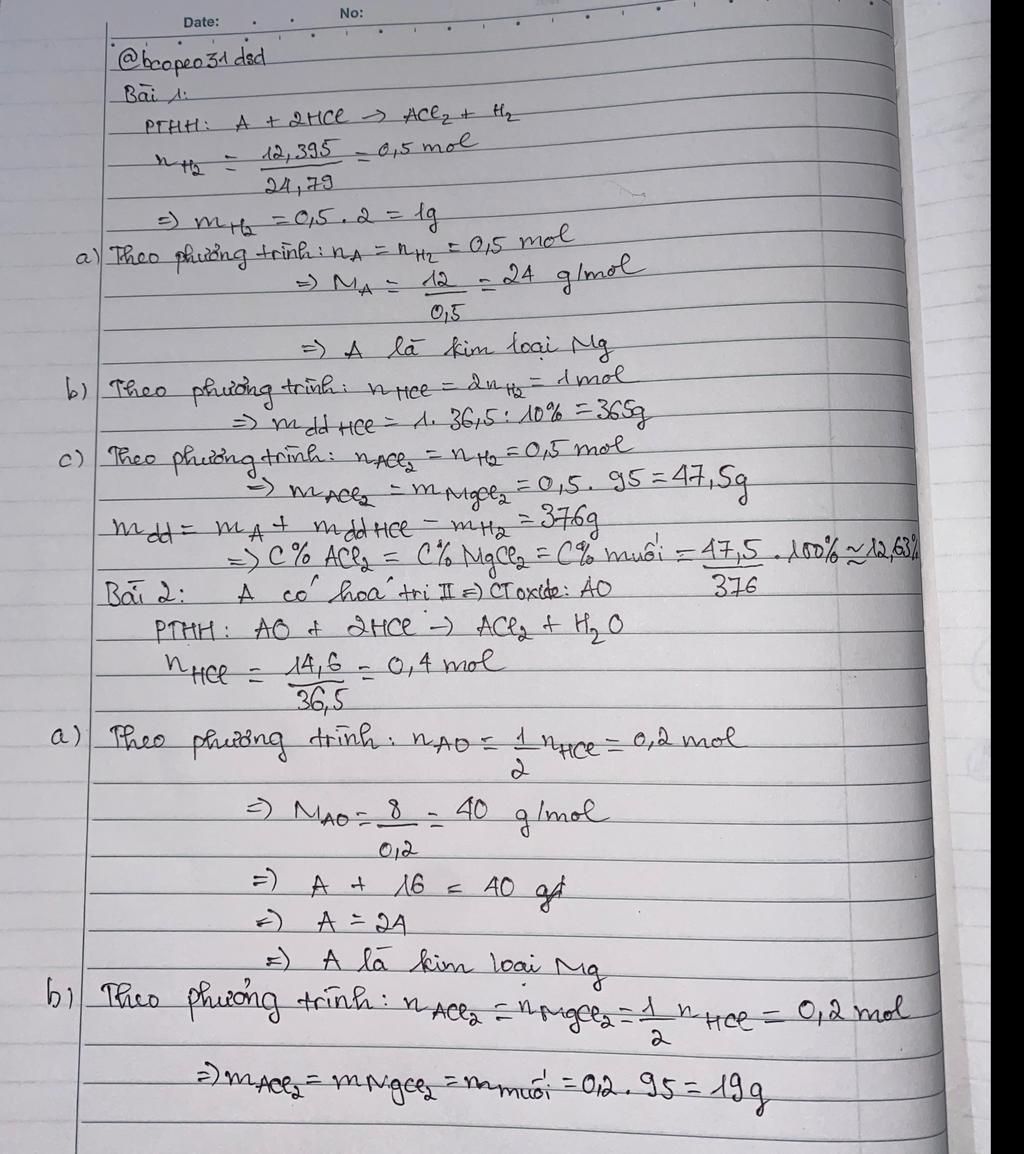 Date: No:
@bcopeo31dsd
Bài 1:
PTHH: A + 2HCl → ACl₂ + H₂
n_H₂ = 12,395/24,79 = 0,5 mol
=> m_H₂ = 0,5 . 2 = 1g
a) Theo phương trình: n_A = n_H₂ = 0,5 mol
=> M_A = 12/0,5 = 24 g/mol
=> A là kim loại Mg
b) Theo phương trình: n_HCl = 2n_H₂ = 1 mol
=> m_dd HCl = 1. 36,5 : 10% = 365g
c) Theo phương trình: n_ACl₂ = n_H₂ = 0,5 mol
=> m_ACl₂ = m_MgCl₂ = 0,5 . 95 = 47,5g
m_dd = m_A + m_dd HCl - m_H₂ = 376g
=> C% ACl₂ = C% MgCl₂ = C% muối = 47,5/376 . 100% ≈ 12,63%
Bài 2: A có hoá trị II => CT oxide: AO
PTHH: AO + 2HCl → ACl₂ + H₂O
n_HCl = 14,6/36,5 = 0,4 mol
a) Theo phương trình: n_AO = 1/2 n_HCl = 0,2 mol
=> M_AO = 8/0,2 = 40 g/mol
=> A + 16 = 40
=> A = 24
=> A là kim loại Mg
b) Theo phương trình: n_ACl₂ = n_MgCl₂ = 1/2 n_HCl = 0,2 mol
=> m_ACl₂ = m_MgCl₂ = m_muối = 0,2 . 95 = 19g